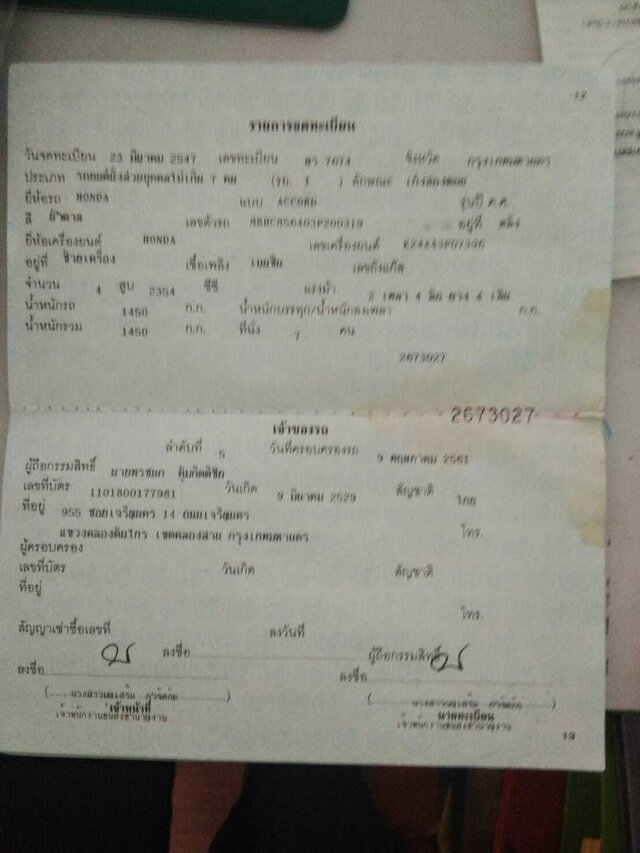 รายการจดทะเบียน
วันจดทะเบียน 23 มีนาคม 2547 เลขทะเบียน 7674 จังหวัด กรุงเทพมหานคร
ประเภท รถยนต์นั่งส่วนบุคคลไม่เกิน 7 คน (รย. 1 ) ลักษณะ
ยี่ห้อรถ HONDA แบบ ACCORD รุ่นปี ค.ศ.
สี น้ำตาล เลขตัวรถ อยู่ที่
ยี่ห้อเครื่องยนต์ HONDA เลขเครื่องยนต์
อยู่ที่ เชื้อเพลิง เบนซิน เลขถังแก๊ส
จำนวน 4 สูบ 2354 ซีซี แรงม้า 2 เพลา 4 ล้อ ยาง 4 เส้น
น้ำหนักรถ 1450 ก.ก. น้ำหนักบรรทุก/น้ำหนักลงเพลา ก.ก.
น้ำหนักรวม 1450 ก.ก. ที่นั่ง 7 คน
2673027
2673027
เจ้าของรถ
ลำดับที่ 5 วันที่ครอบครองรถ 9 พฤษภาคม 2561
ผู้ถือกรรมสิทธิ์
เลขที่บัตร 1101800177981 วันเกิด 9 มีนาคม 2529 สัญชาติ ไทย
ที่อยู่ 955 ซอยเจริญนคร 14 ถนนเจริญนคร
แขวงคลองต้นไทร เขตคลองสาน กรุงเทพมหานคร โทร.
ผู้ครอบครอง
เลขที่บัตร วันเกิด สัญชาติ
ที่อยู่
โทร.
สัญญาเช่าซื้อเลขที่ ลงวันที่
ลงชื่อ ผู้ถือกรรมสิทธิ์
ลงชื่อ ลงชื่อ
เจ้าหน้าที่ นายทะเบียน
เจ้าพนักงานขนส่งชำนาญงาน เจ้าพนักงานขนส่งชำนาญงาน